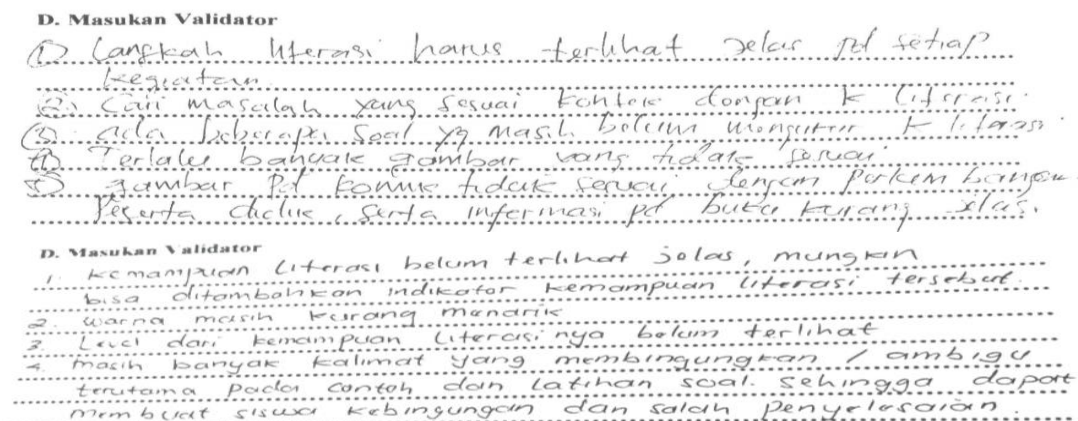 D. Masukan Validator
① Langkah literasi harus terlihat jelas pd setiap
kegiatan.
②. Cari masalah yang sesuai konteks dengan k literasi.
③. ada beberapa soal yg masih belum mengukur k literasi
④ Terlalu banyak gambar yang tidak sesuai
⑤ gambar pd komik tidak sesuai dengan perkembangan
Peserta didik, serta informasi pd buku kurang jelas.
D. Masukan Validator
1. kemampuan Literasi belum terlihat jelas, mungkin
bisa ditambahkan indikator kemampuan literasi tersebut.
2. warna masih kurang menarik
3. Level dari kemampuan Literasinya belum terlihat
4. masih banyak kalimat yang membingungkan / ambigu
terutama pada contoh dan latihan soal. sehingga dapat
membuat siswa kebingungan dan salah penyelesaian.